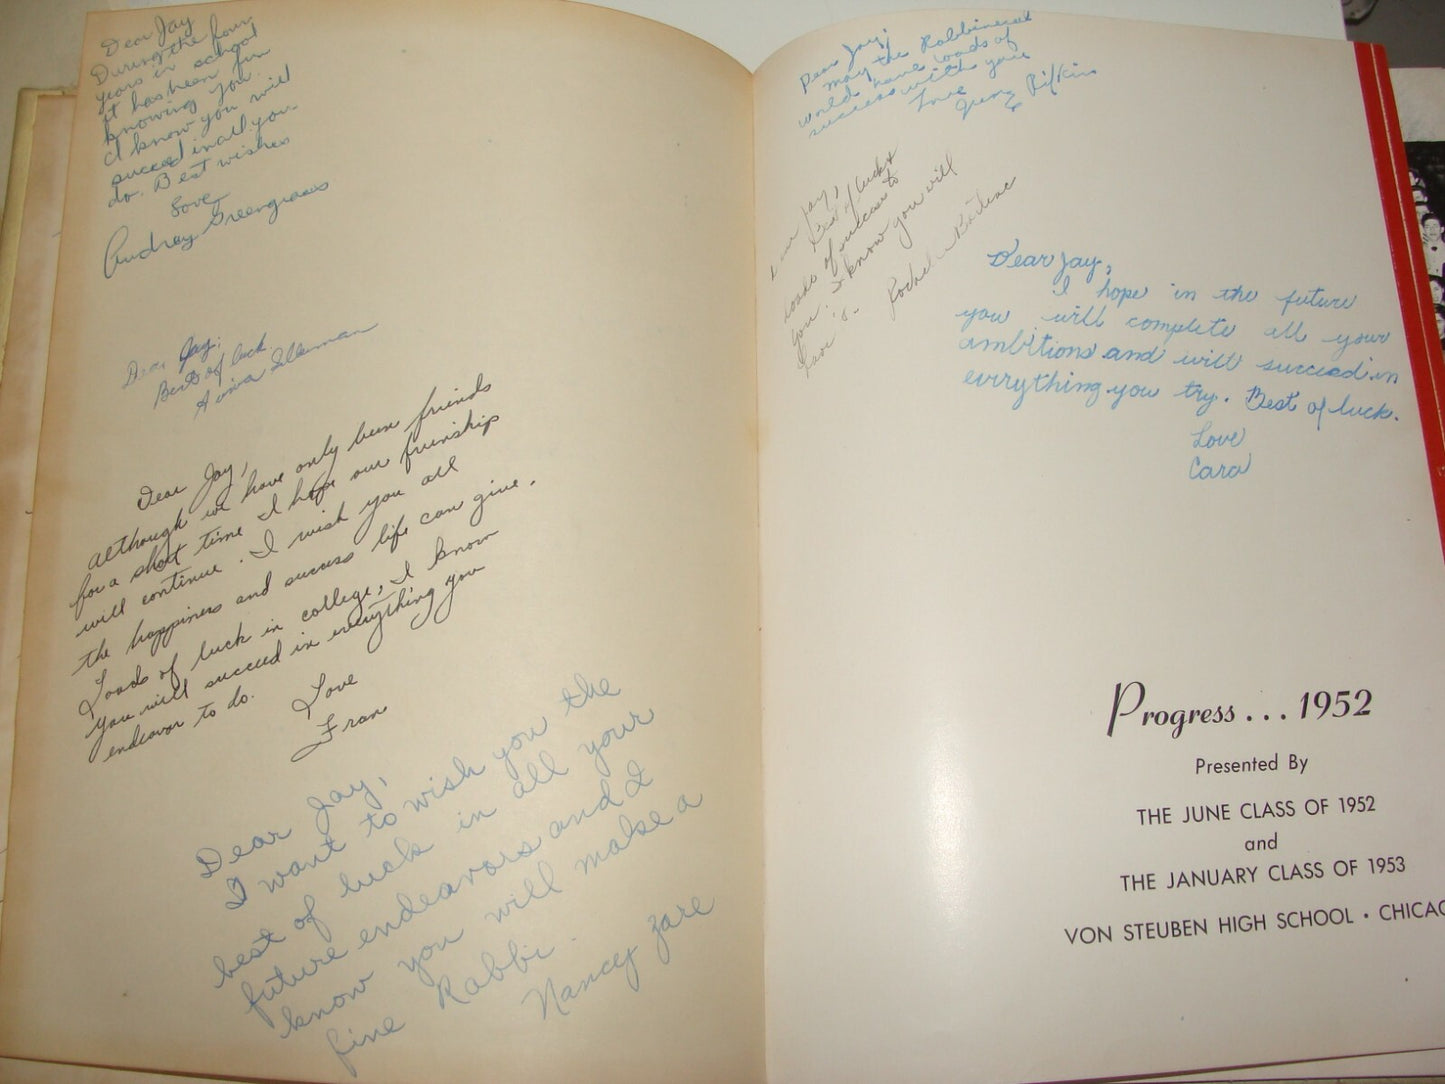 Dear Jay
During the four
years in school
it has been fun
knowing you.
I know you will
succeed in all you
do. Best wishes
Love,
Audrey Greengrass
Dear Jay,
Best of luck.
Dear Jay,
although we have only been friends
for a short time I hope our frienship
will continue. I wish you all
the happiness and success life can give.
Loads of luck in college, I know
you will succeed in everything you
endeavor to do.
Love
Fran
Dear Jay,
I want to wish you the
best of luck in all your
future endeavors and I
know you will make a
fine Rabbi.
Nancy Zare
Dear Jay,
may the Rabbinical
world have loads of
success with you
Love
Rifkin
Dear Jay,
Best of luck &
loads of success to
you. I know you will
Dear Jay,
I hope in the future
you will complete all your
ambitions and will succeed in
everything you try. Best of luck.
Love
Cara
Progress . . . 1952
Presented By
THE JUNE CLASS OF 1952
and
THE JANUARY CLASS OF 1953
VON STEUBEN HIGH SCHOOL • CHICAG